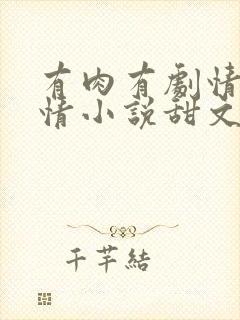 有肉有劇情
情小說甜文
千芊結